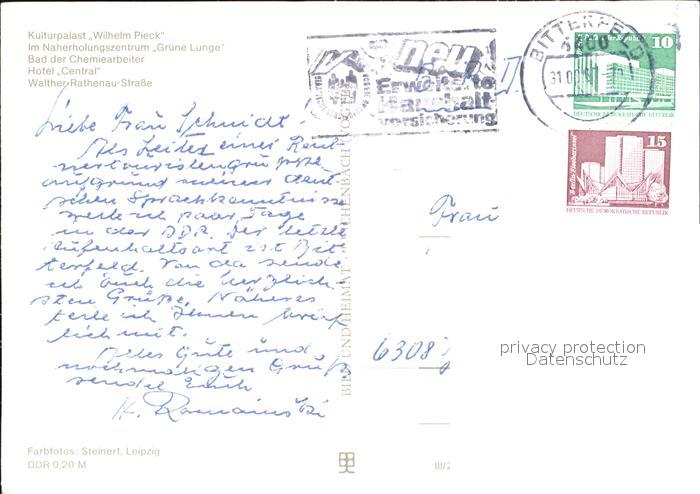 Kulturpalast „Wilhelm Pieck“
Im Naherholungszentrum „Grüne Lunge“
Bad der Chemiearbeiter
Hotel „Central“
Walther-Rathenau-Straße
neu
Erweiterte
Haushalt
versicherung
BITTERFELD
4400
10
DEUTSCHE DEMOKRATISCHE REPUBLIK
15
DEUTSCHE DEMOKRATISCHE REPUBLIK
Liebe Frau Schmidt!
Als Leiter einer Rent
nertouristengruppe
aufgrund meiner deut
schen Sprachkenntnisse
weile ich paar Tage
in der DDR. Der letzte
Aufenthaltsort ist Bit
terfeld. Von da sende
ich Euch die herzlich
sten Grüße. Näheres
teile ich Ihnen brief
lich mit.
Alles Gute und
nochmaligen Gruß
sendet Euch
Frau
6308
privacy protection
Datenschutz
BILD UND HEIMAT REICHENBACH
Farbfotos: Steinert, Leipzig
DDR 0,20 M
III/2